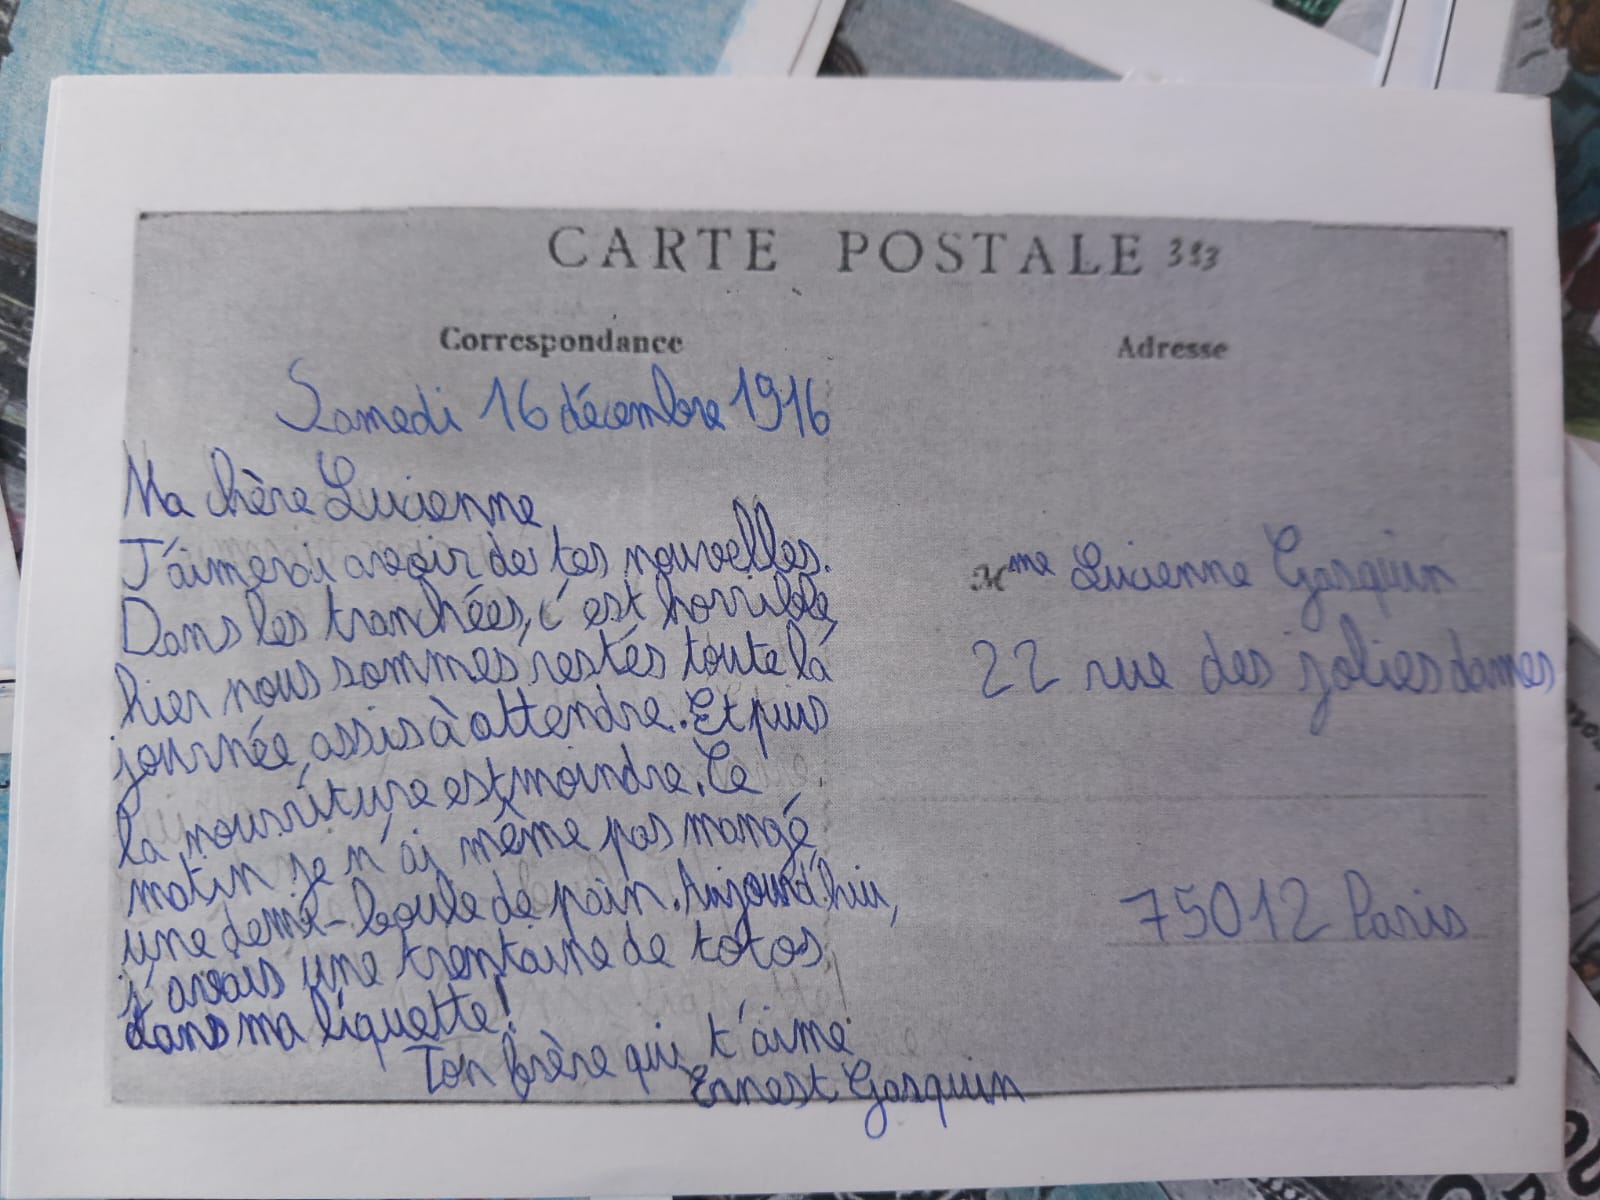 CARTE POSTALE 313
Correspondance
Adresse
Samedi 16 décembre 1916
Ma chère Lucienne,
J'aimerai avoir de tes nouvelles.
Dans les tranchées, c'est horrible,
hier nous sommes restés toute la
journée assis à attendre. Et puis
la nourriture est moindre. Ce
matin je n'ai même pas mangé
une demi-boule de pain. Aujourd'hui,
j'avais une trentaine de totos
dans ma liquette!
Ton frère qui t'aime
Ernest Gasquin
Mme Lucienne Gasquin
22 rue des jolies dames
75012 Paris